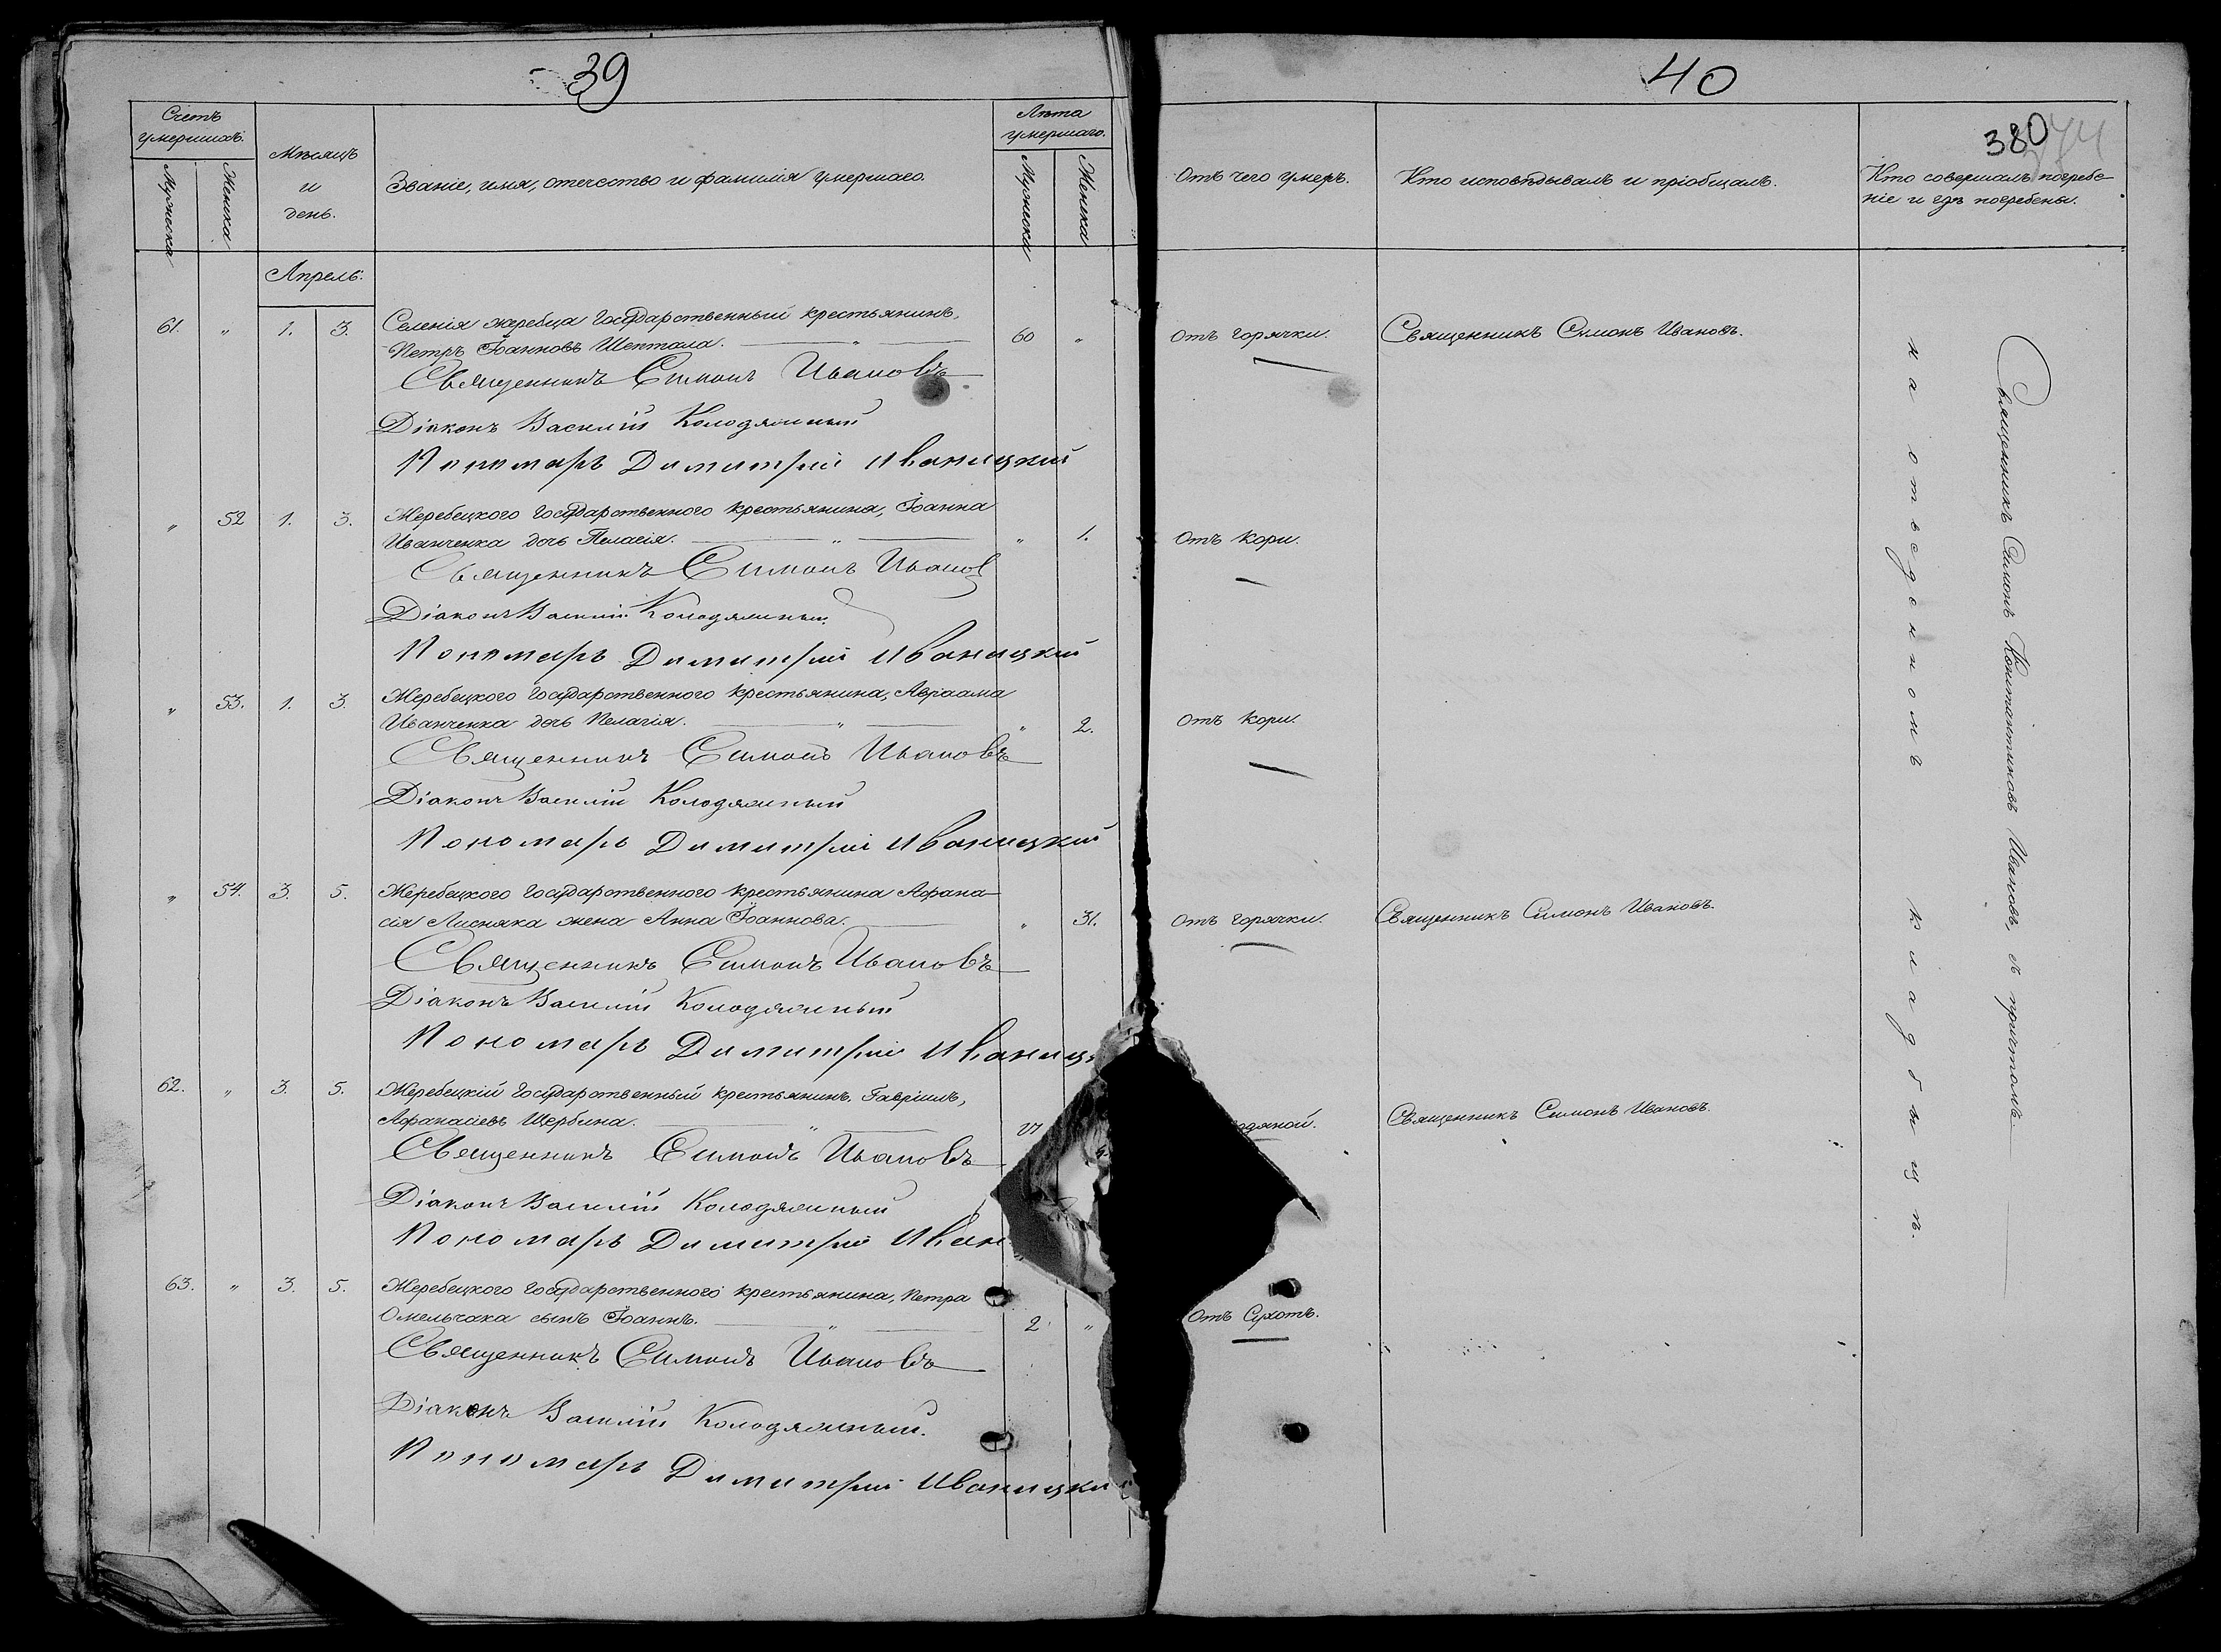 39
Счетъ
умершихъ.
Мужеска
Женска
Мѣсяцъ
и
день.
Званіе, имя, отечество и фамилія умершаго.
Лѣта
умершаго.
Мужески
Женска
Апрель:
61. " 1. 3. Селенія жеребца Государственный крестьянинъ,
Петръ Іоанновъ Шептала. " 60 "
Священникъ Симонъ Ивановъ
Діаконъ Василій Колодяжный
Пономарь Димитрій Иваницкий
" 52 1. 3. Жеребецкого Государственного крестьянина, Іоанна
Иванченка дочь Пелагія. " " 1.
Священникъ Симонъ Иванов
Діаконъ Василій Колодяжный.
Пономарь Димитрій Иваницкий
" 53. 1. 3. Жеребецкого Государственного крестьянина, Авраама
Иванченка дочь Пелагія. " " 2.
Священникъ Симонъ Ивановъ
Діаконъ Василій Колодяжный
Пономарь Димитрій Иваницкий
" 54. 3. 5. Жеребецкого Государственного крестьянина Афана-
сія Лисняка жена Анна Іоаннова. " 31.
Священникъ Симонъ Ивановъ
Діаконъ Василій Колодяжный
Пономарь Димитрій Иваниц
62. " 3. 5. Жеребецкій Государственный крестьянинъ. Гавріилъ,
Афанасіевъ Щербина. "
Священникъ Симонъ Ивановъ
Діаконъ Василій Колодяжный
Пономарь Димитрій Иван
63. " 3. 5. Жеребецкого Государственного крестьянина, Петра
Омельчака сынъ Іоаннъ. " 2 "
Священникъ Симонъ Ивановъ
Діаконъ Василій Колодяжный.
Пономарь Димитрій Иваницки
40
380
Отъ чего умеръ.
Кто исповѣдывалъ и пріобщалъ.
Кто совершалъ погребе-
ніе и гдѣ погребены.
Отъ горячки. Священникъ Симонъ Ивановъ.
Отъ Кори.
Отъ Кори.
Отъ горячки. Священникъ Симонъ Ивановъ.
одяной. Священникъ Симонъ Ивановъ.
Отъ Сухотъ.
Священникъ Симонъ Константиновъ Ивановъ, съ причтомъ
на отведенномъ кладбищѣ.